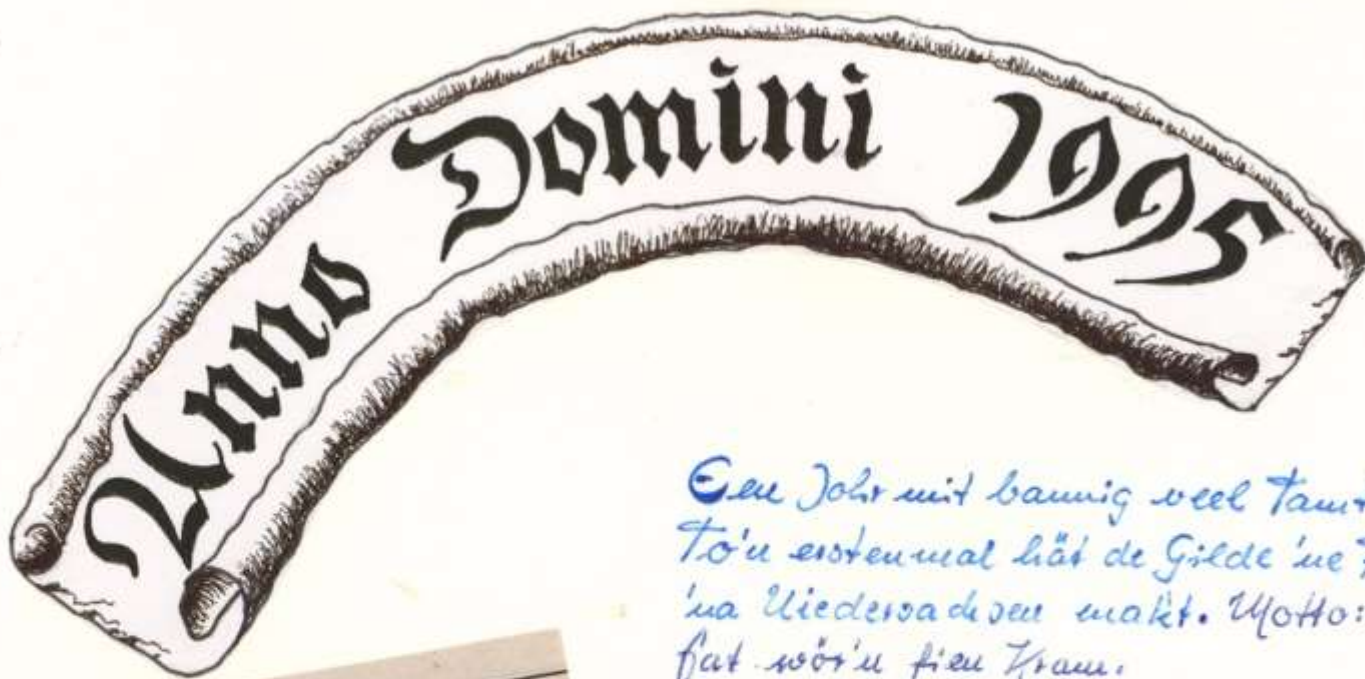 Anno Domini 1995
Een Johr mit bannig veel
To'n erstenmal hät de Gilde 'ne
'na Niedersachsen makt. Motto:
Dat wör'n fien Kram.